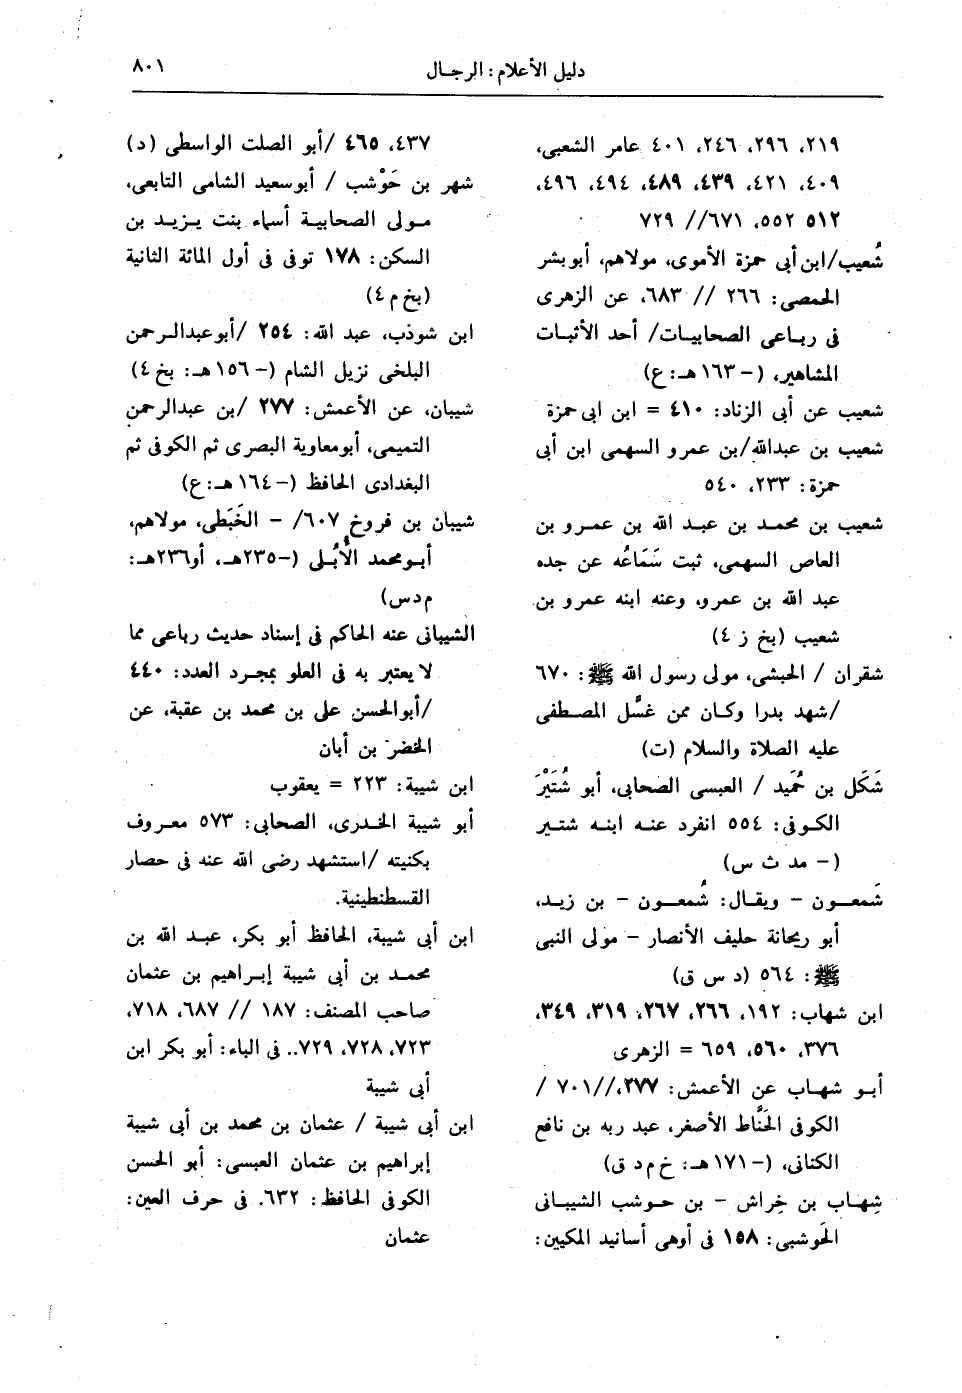 دليل الأعلام : الرجـال
٨٠١
٢١٩، ٢٩٦، ٢٤٦، ٤٠١ عامر الشعبى،
٤٠٩، ٤٢١، ٤٣٩، ٤٨٩، ٤٩٤، ٤٩٦،
٥١٢ ٥٥٢، ٦٧١// ٧٢٩
شُعيب/ابن أبى حمزة الأموى، مولاهم، أبو بشر
الحمصى: ٢٦٦ // ٦٨٣، عن الزهرى
فى رباعى الصحابيات/ أحد الأثبات
المشاهير، (- ١٦٣ هـ: ع)
شعيب عن أبى الزناد: ٤١٠ = ابن ابى حمزة
شعيب بن عبدالله/بن عمرو السهمى ابن أبى
حمزة: ٢٣٣، ٥٤٠
شعيب بن محمد بن عبد الله بن عمرو بن
العاص السهمى، ثبت سَمَاعُه عن جده
عبد الله بن عمرو، وعنه ابنه عمرو بن
شعيب (بخ ز ٤)
شقران / الحبشى، مولى رسول الله ﷺ: ٦٧٠
/شهد بدرا وكان ممن غسَّل المصطفى
عليه الصلاة والسلام (ت)
شَكَل بن حُميد / العبسى الصحابى، أبو شُتَيْر
الكوفى: ٥٥٤ انفرد عنه ابنه شتير
(- مد ث س)
شَمعـون - ويقال: شُمعـون - بن زيد،
أبو ريحانة حليف الأنصار - مولى النبى
ﷺ: ٥٦٤ (د س ق)
ابن شهاب: ١٩٢، ٢٦٦، ٢٦٧، ٣١٩، ٣٤٩،
٣٧٦، ٥٦٠، ٦٥٩ = الزهرى
أبو شهاب عن الأعمش: ٢٧٧،//٧٠١ /
الكوفى الحَنَّاط الأصفر، عبد ربه بن نافع
الكنانى، (- ١٧١ هـ: خ م د ق)
شِهاب بن خِراش - بن حوشب الشيبانى
الحَوشبى: ١٥٨ فى أوهى أسانيد المكيين:
٤٣٧، ٤٦٥ /أبو الصلت الواسطى (د)
شهر بن حَوْشب / أبوسعيد الشامى التابعى،
مولى الصحابية أسماء بنت يزيد بن
السكن: ١٧٨ توفى فى أول المائة الثانية
(بخ م ٤)
ابن شوذب، عبد الله: ٢٥٤ /أبوعبدالرحمن
البلخى نزيل الشام (- ١٥٦ هـ: بخ ٤)
شيبان، عن الأعمش: ٢٧٧ /بن عبدالرحمن
التميمى، أبومعاوية البصرى ثم الكوفى ثم
البغدادى الحافظ (- ١٦٤ هـ: ع)
شيبان بن فروخ ٦٠٧/ - الخَبَطى، مولاهم،
أبو محمد الأُبُلى (-٢٣٥هـ، أو٢٣٦هـ:
م د س)
الشيبانى عنه الحاكم فى إسناد حديث رباعى مما
لا يعتبر به فى العلو بمجرد العدد: ٤٤٠
/أبوالحسن على بن محمد بن عقبة، عن
الخضر بن أبان
ابن شيبة: ٢٢٣ = يعقوب
أبو شيبة الخدرى، الصحابى: ٥٧٣ معروف
بكنيته /استشهد رضى الله عنه فى حصار
القسطنطينية.
ابن أبى شيبة، الحافظ أبو بكر، عبد الله بن
محمد بن أبى شيبة إبراهيم بن عثمان
صاحب المصنف: ١٨٧ // ٦٨٧، ٧١٨،
٧٢٣، ٧٢٨، ٧٢٩.. فى الباء: أبو بكر ابن
أبى شيبة
ابن أبى شيبة / عثمان بن محمد بن أبى شيبة
إبراهيم بن عثمان العبسى: أبو الحسن
الكوفى الحافظ: ٦٣٢. فى حرف العين:
عثمان